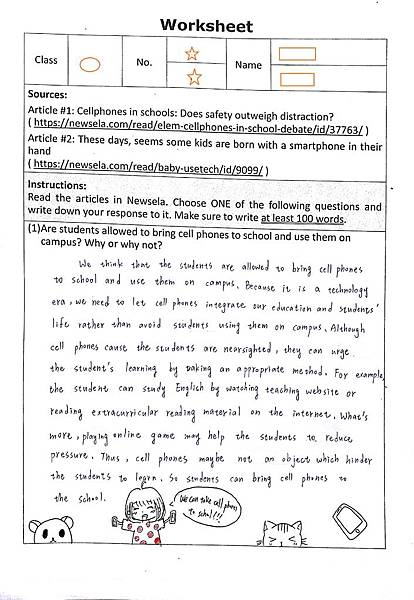 Worksheet
Class
No.
Name
Sources:
Article #1: Cellphones in schools: Does safety outweigh distraction?
( https://newsela.com/read/elem-cellphones-in-school-debate/id/37763/ )
Article #2: These days, seems some kids are born with a smartphone in their
hand
( https://newsela.com/read/baby-usetech/id/9099/ )
Instructions:
Read the articles in Newsela. Choose ONE of the following questions and
write down your response to it. Make sure to write at least 100 words.
(1)Are students allowed to bring cell phones to school and use them on
campus? Why or why not?
We think that the students are allowed to bring cell phones
to school and use them on campus. Because it is a technology
era, we need to let cell phones integrate our education and students'
life rather than avoid students using them on campus. Although
cell phones cause the students are nearsighted, they can urge
the student's learning by taking an appropriate method. For example,
the student can study English by watching teaching website or
reading extracurricular reading material on the internet. What's
more, playing online game may help the students to reduce
pressure. Thus, cell phones maybe not an object which hinder
the students to learn. So students can bring cell phones to
the school.
We can take cell phones
to schol!!!